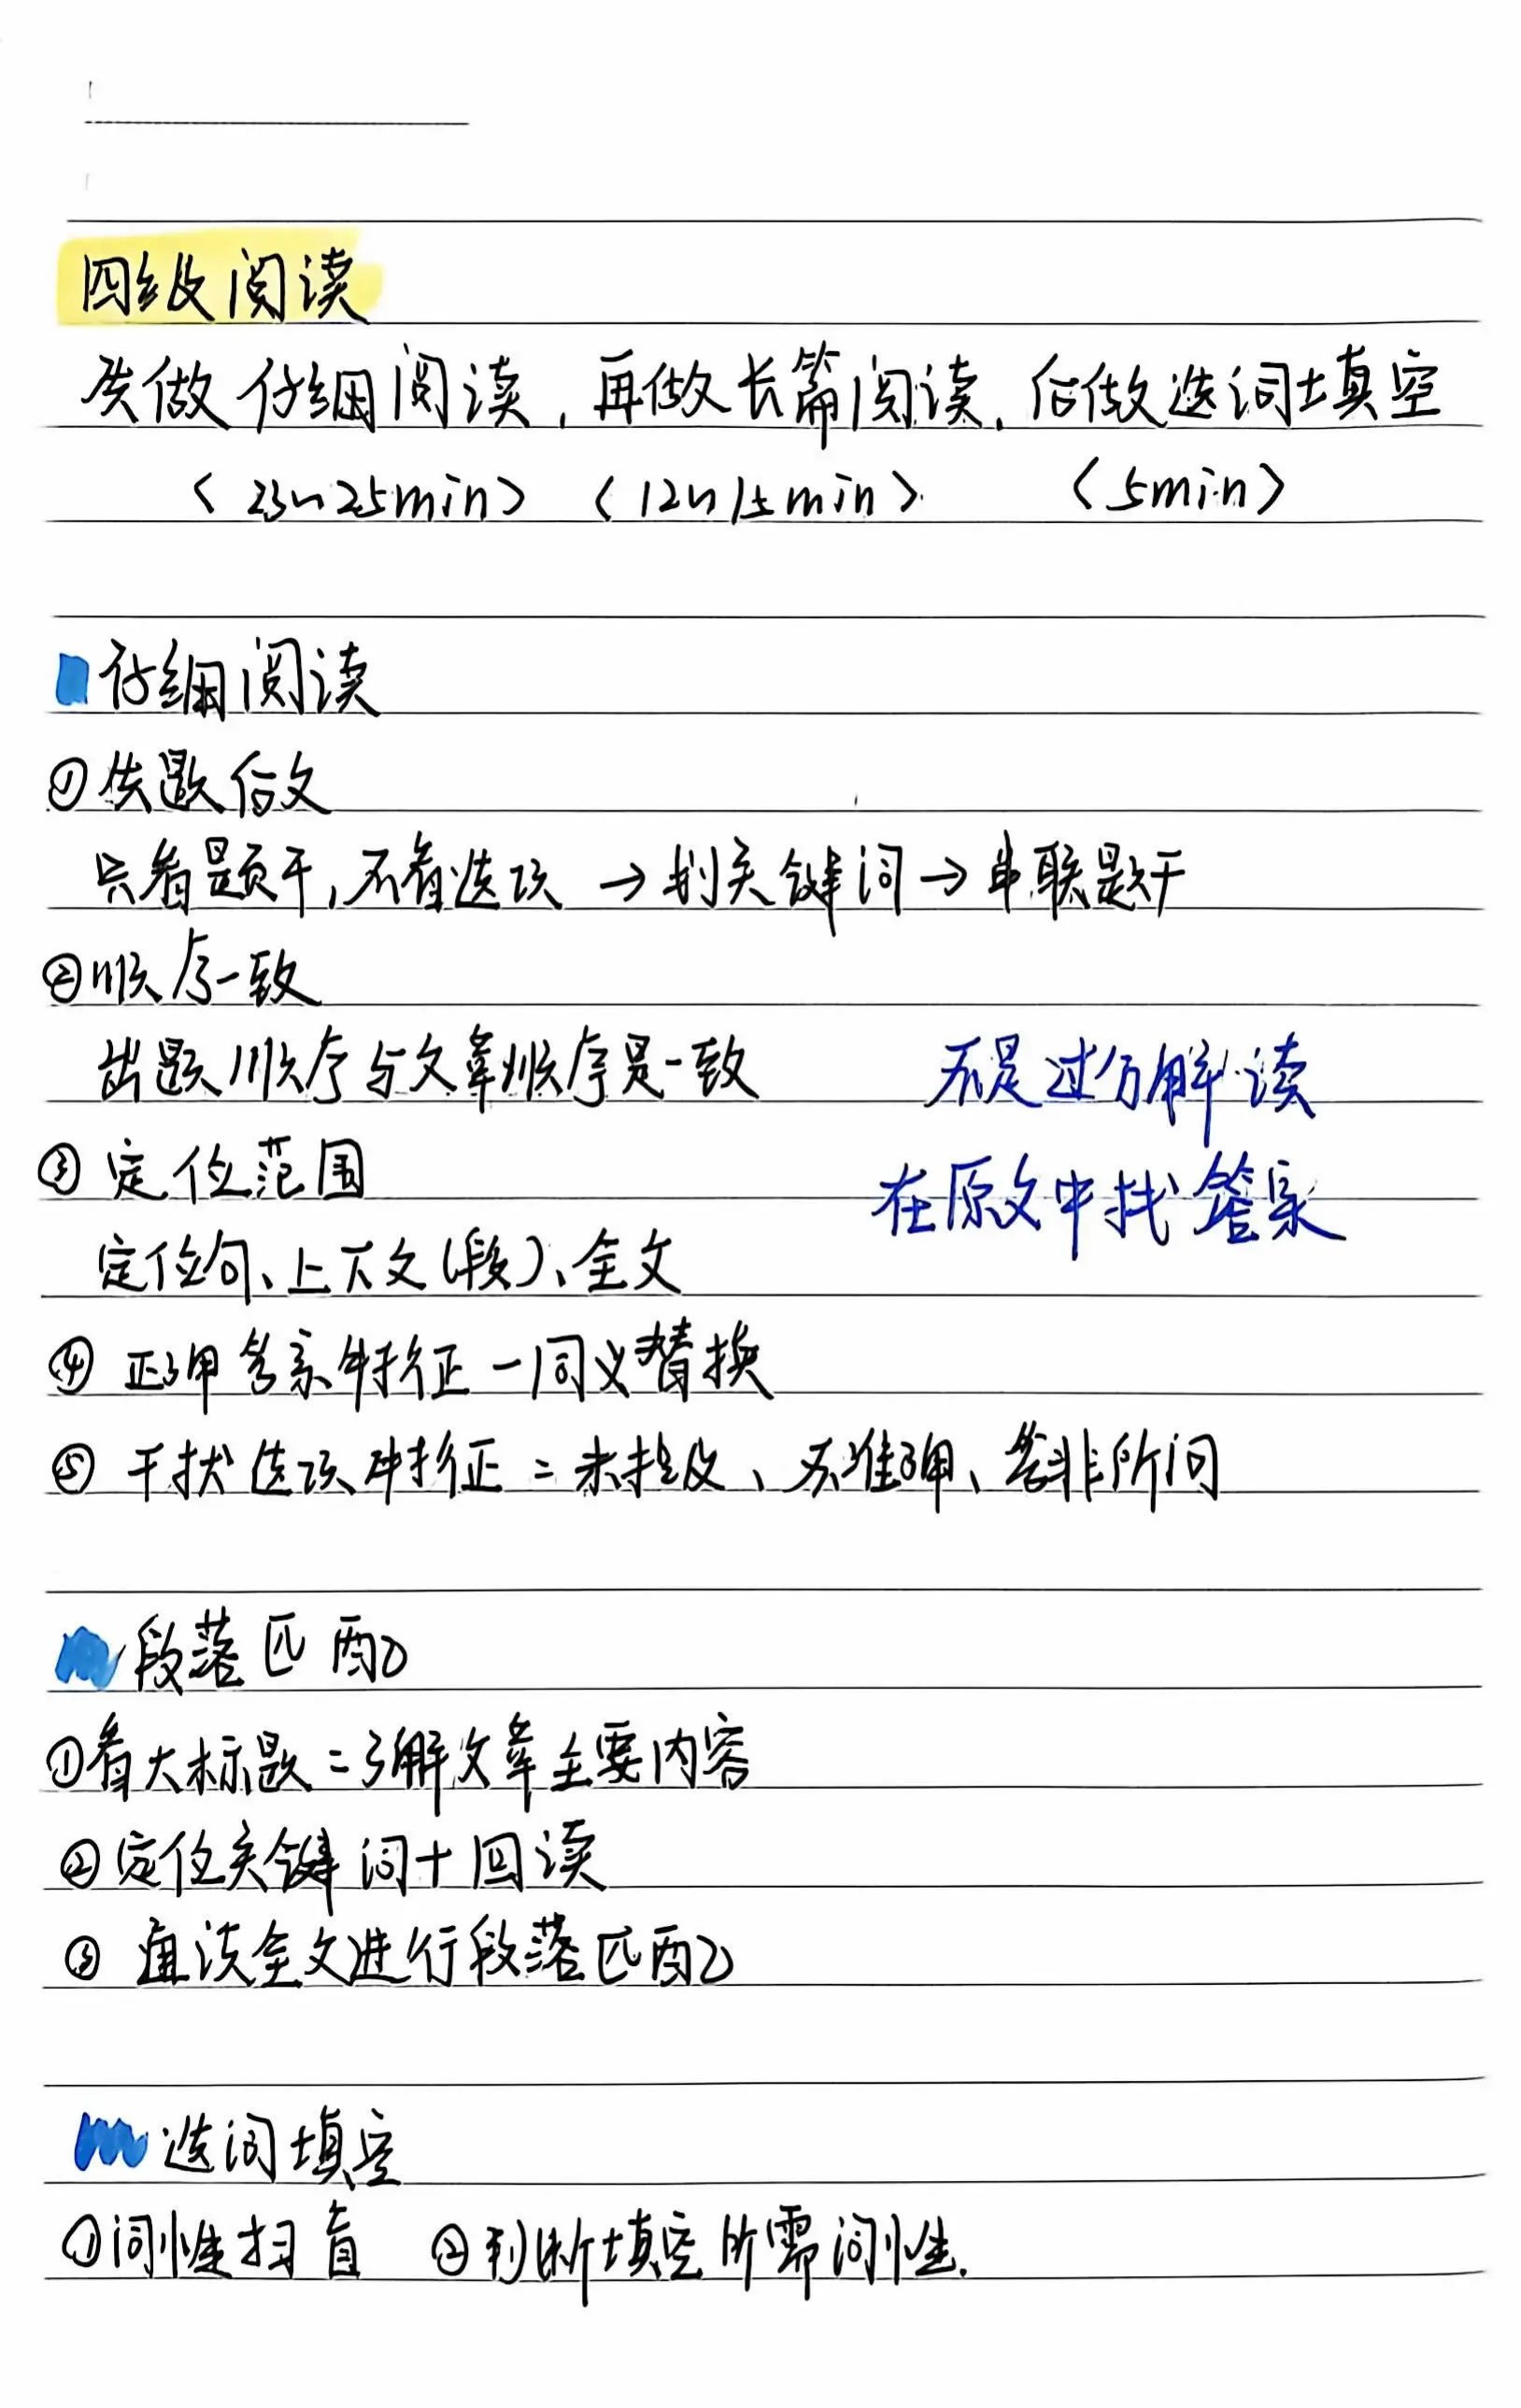 四级阅读
先做仔细阅读,再做长篇阅读,后做选词填空
<23~25min> <12~15min> <5min>
仔细阅读
①先题后文
只看题干,不看选项→划关键词→串联题干
②顺序一致
出题顺序与文章顺序是一致
不是过分解读
③定位范围
在原文中找答案
定位句、上下文(段)、全文
④正确答案特征—同义替换
⑤干扰选项特征:未提及、不准确、答非所问
段落匹配
①看大标题:了解文章主要内容
②定位关键词+回读
③通读全文进行段落匹配
选词填空
①词性扫盲 ②判断填空所需词性.